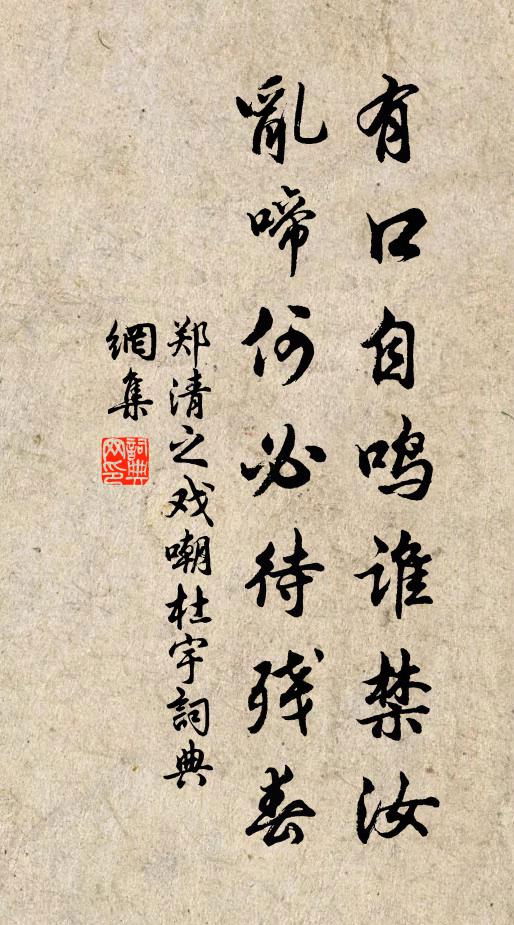 有口自鸣谁禁汝
亂啼何必待残春
郑清之戏嘲杜宇詞典
網集
詞典网印